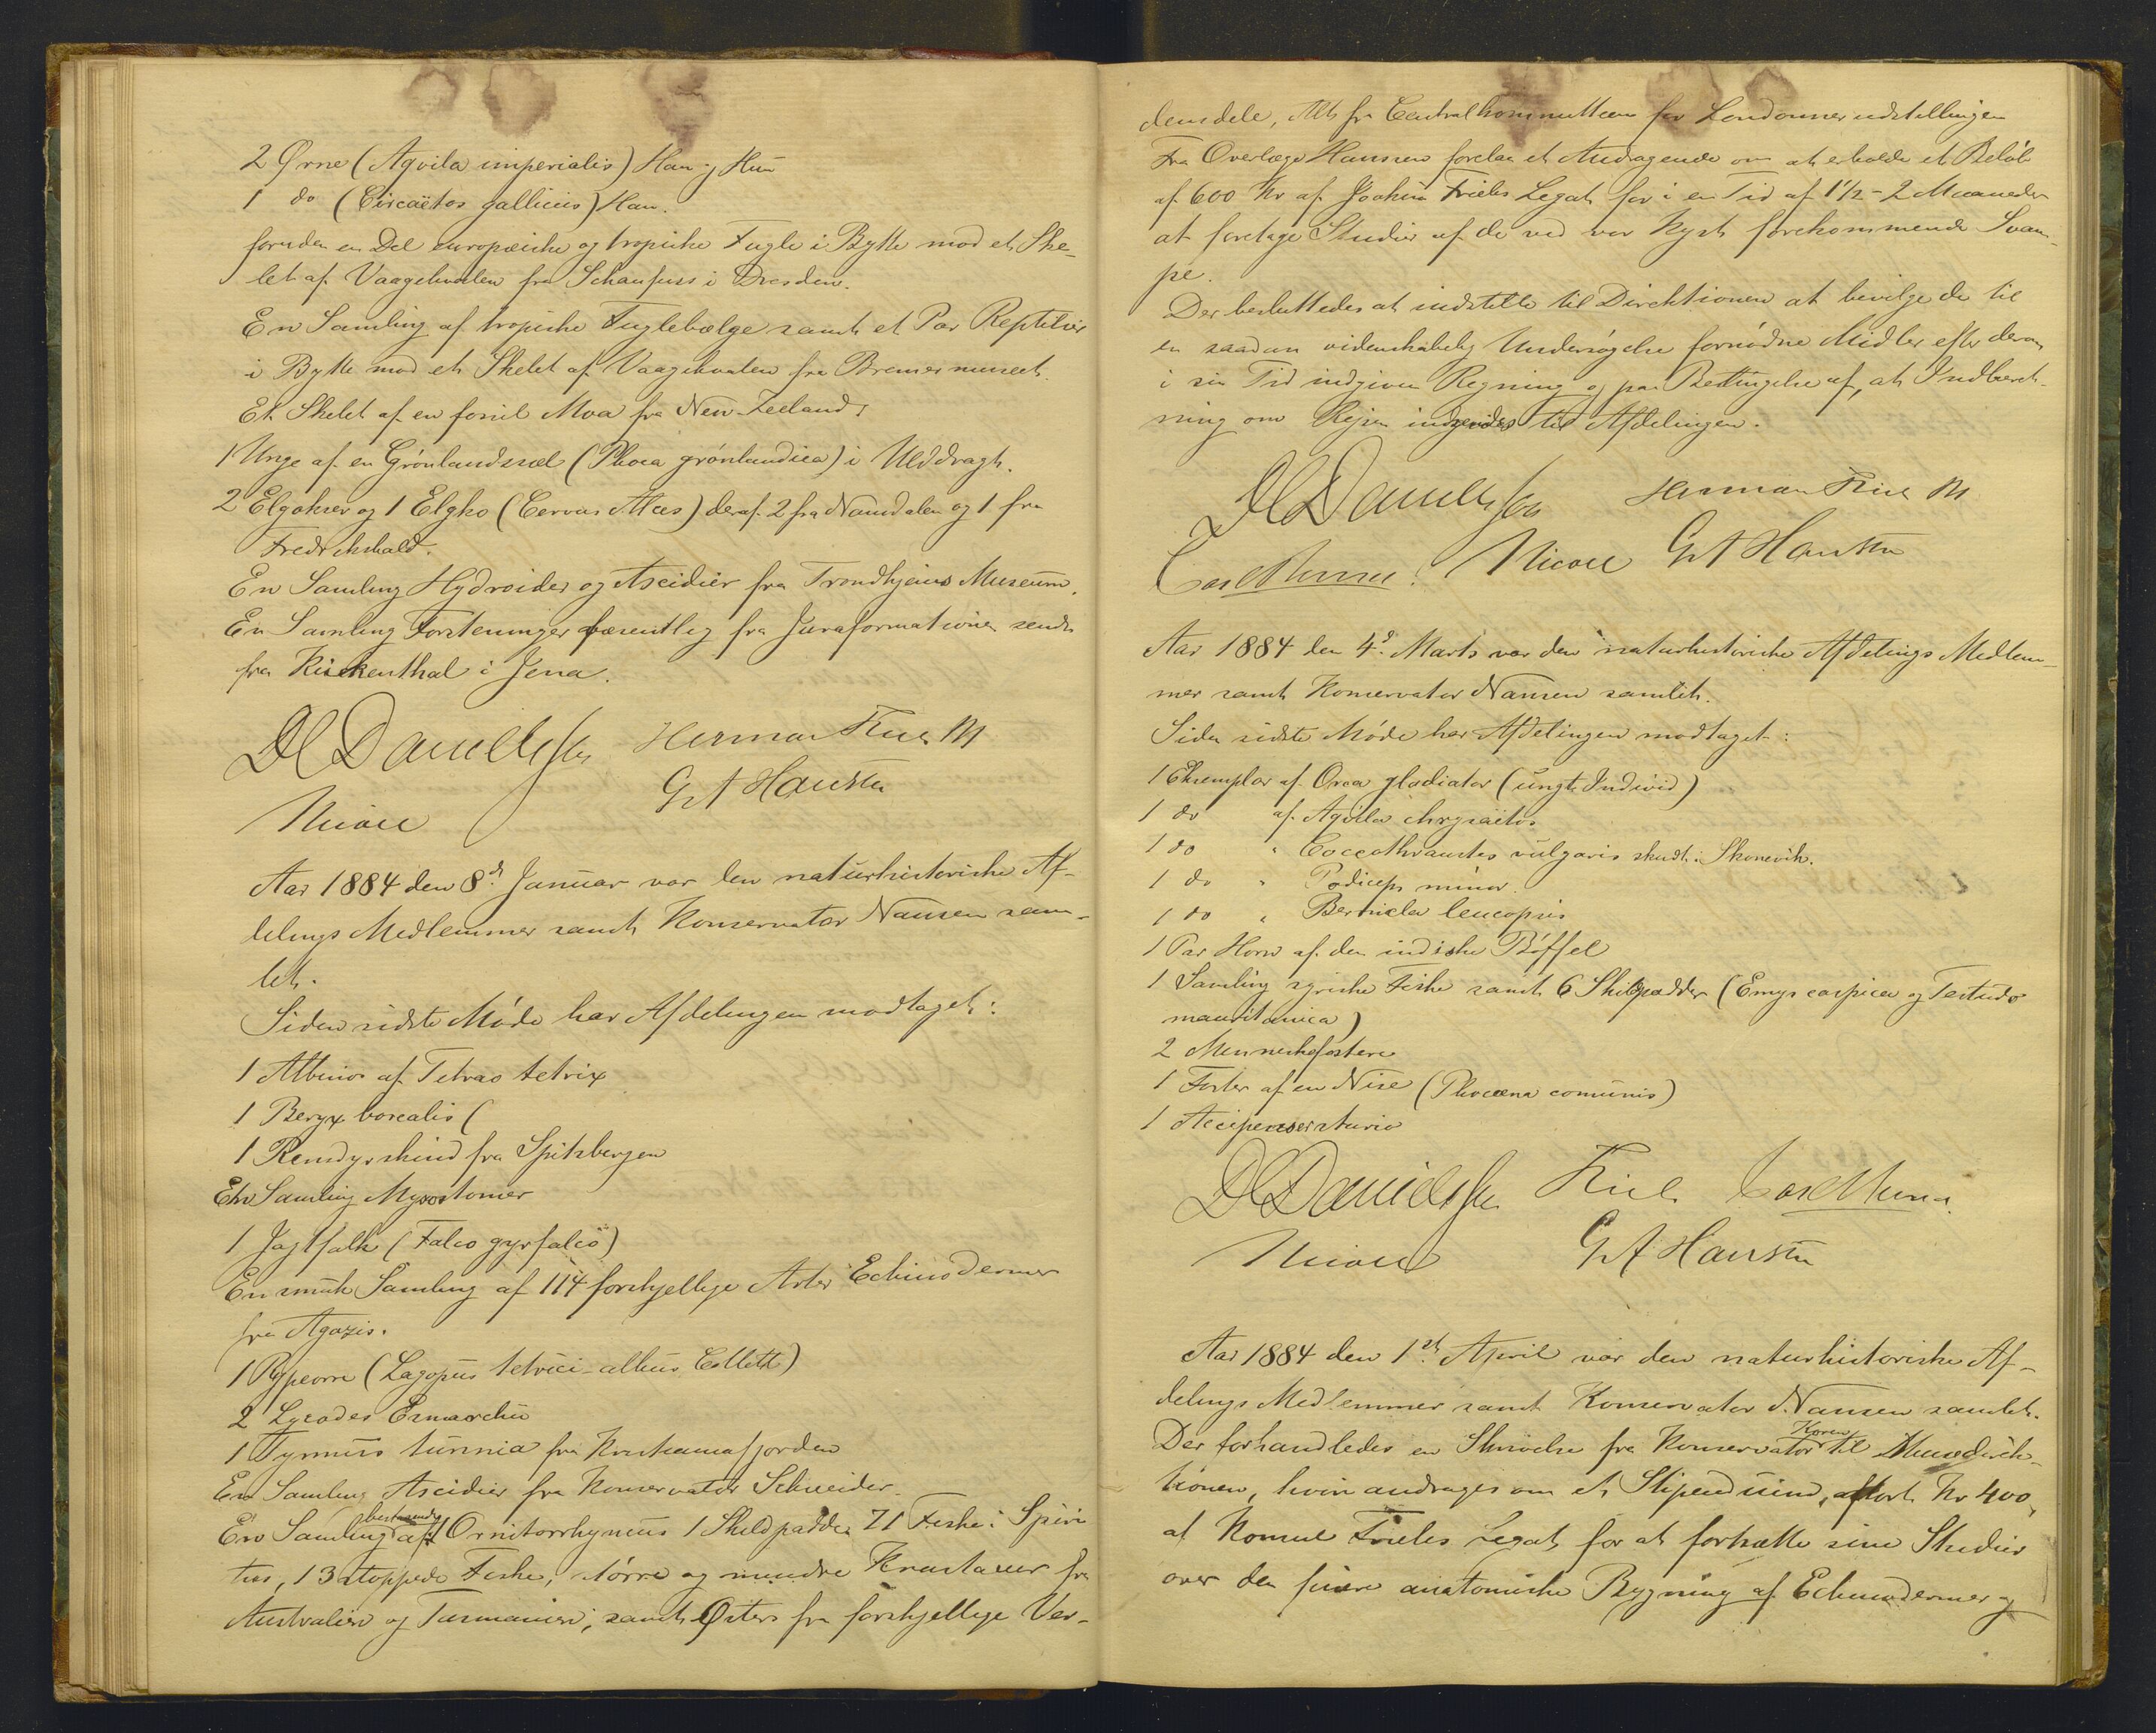 2 Ørne (Aqvila imperialis) Han og Hun
1 do (Circaëtos gallicus) Han.
foruden en Del europæiske og tropiske Fugle i Bytte mod et Ske-
let af Vaagehvalen fra Schaufuss i Dresden.
En Samling af tropiske Fuglebælge samt et Par Reptilier
i Bytte mod et Skelet af Vaagehvalen fra Bremermuseet.
Et Skelet af en fossil Moa fra New-Zeeland.
1 Unge af en Grönlandssæl (Phoca grönlandica) i Ulddragt.
2 Elgokser og 1 Elgko (Cervus Alces) deraf 2 fra Namdalen og 1 fra
Fredrikshald.
En Samling Hydroider og Ascidier fra Trondhjems Museum.
En Samling Forsteninger væsentlig fra Juraformationen sendt
fra Kückenthal i Jena.
DC Danielssen Herman Friele M
G A Hansen
Nicoll
Aar 1884 den 8d. Januar var den naturhistoriske Af-
delings Medlemmer samt Konservator Nansen sam-
let.
Siden sidste Möde har Afdelingen modtaget:
1 Albino af Tetrao tetrix
1 Beryx borealis (
1 Rensdyrskind fra Spitsbergen
En Samling Myzostomer
1 Jagtfalk (Falco gyrfalco)
En smuk Samling af 114 forskjellige Arter Echinodermer
fra Agazis.
1 Rypeorre (Lagopus tetrici-albus Collett)
2 Lycodes Esmarckii
1 Tynnus tunnia fra Kristianiafjorden
En Samling Ascidier fra Konservator Schneider.
En Samling bestaaende af 1 Ornitorrhyncus 1 Skildpadde 71 Fiske i Spiri
tus, 13 stoppede Fiske, större og mindre Krustaceer fra
Australien og Tasmanien, samt Østers fra forskjellige Ver-
densdele, Alt fra Centralkommitteen for Londonnerudstillingen
Fra Overlæge Hanssen forelaa et Andragende om at erholde et Belöb
af 600 Kr af Joakim Frieles Legat for i en Tid af 1½-2 Maaneder
at foretage Studier af de ved vor Kyst forekommende Svam-
pe.
Der besluttedes at indstille til Direktionen at bevilge de til
en saadan videnskabelig Undersögelse fornödne Midler efter derom
i sin Tid indgiven Regning og paa Betingelse af, at Indberet-
ning om Rejsen indsendes til Afdelingen.
DC Danielssen Herman Friele M
Nicoll G A Hansen
Aar 1884 den 4d. Marts var den naturhistoriske Afdelings Medlem-
mer samt Konservator Nansen samlet.
Siden sidste Möde har Afdelingen modtaget:
1 Eksemplar af Orca gladiator (ungt Individ)
1 do af Aqvila chrysaëtos
1 do " Coccothraustes vulgaris skudt i Skonevik.
1 do " Podiceps minor.
1 do " Bernicla leucopsis
1 Par Horn af den indiske Böffel
1 Samling syriske Fiske samt 6 Skildpadder (Emys caspica og Testudo
mauritanica)
2 Menneskefostere
1 Foster af en Nise (Phocæna comunis)
1 Accipenser sturio
DC Danielssen Friele
Nicoll G A Hansen
Aar 1884 den 1st. April var den naturhistoriske Af-
delings Medlemmer samt Konservator Nansen samlet.
Der forhandledes en Skrivelse fra Konservator Koren til Museidirek-
tionen, hvori andrages om et Stipendium, stort Kr 400,
af Konsul Frieles Legat for at fortsætte sine Studier
over den finere anatomiske Bygning af Echinodermer og